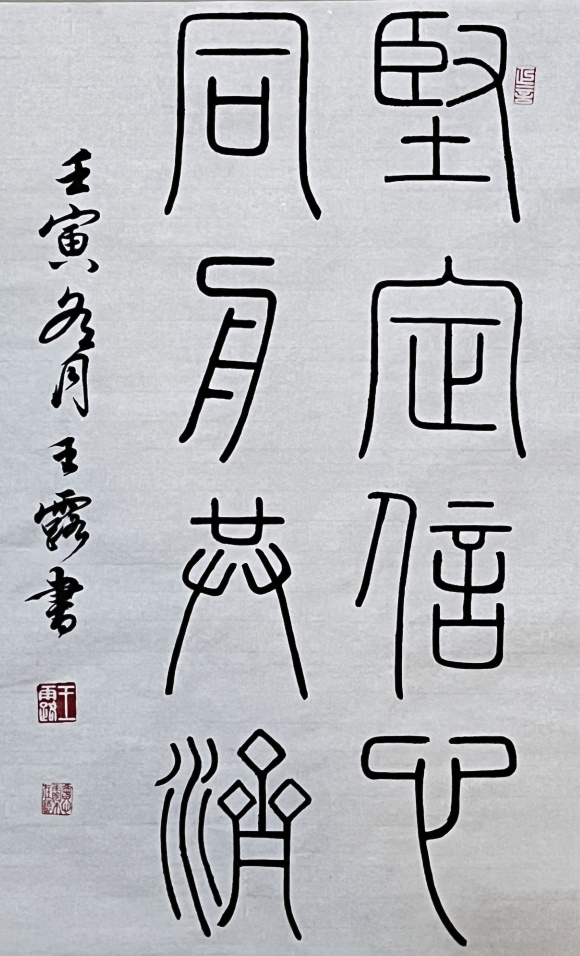 堅定信心
同舟共濟
壬寅冬月王露書
王露